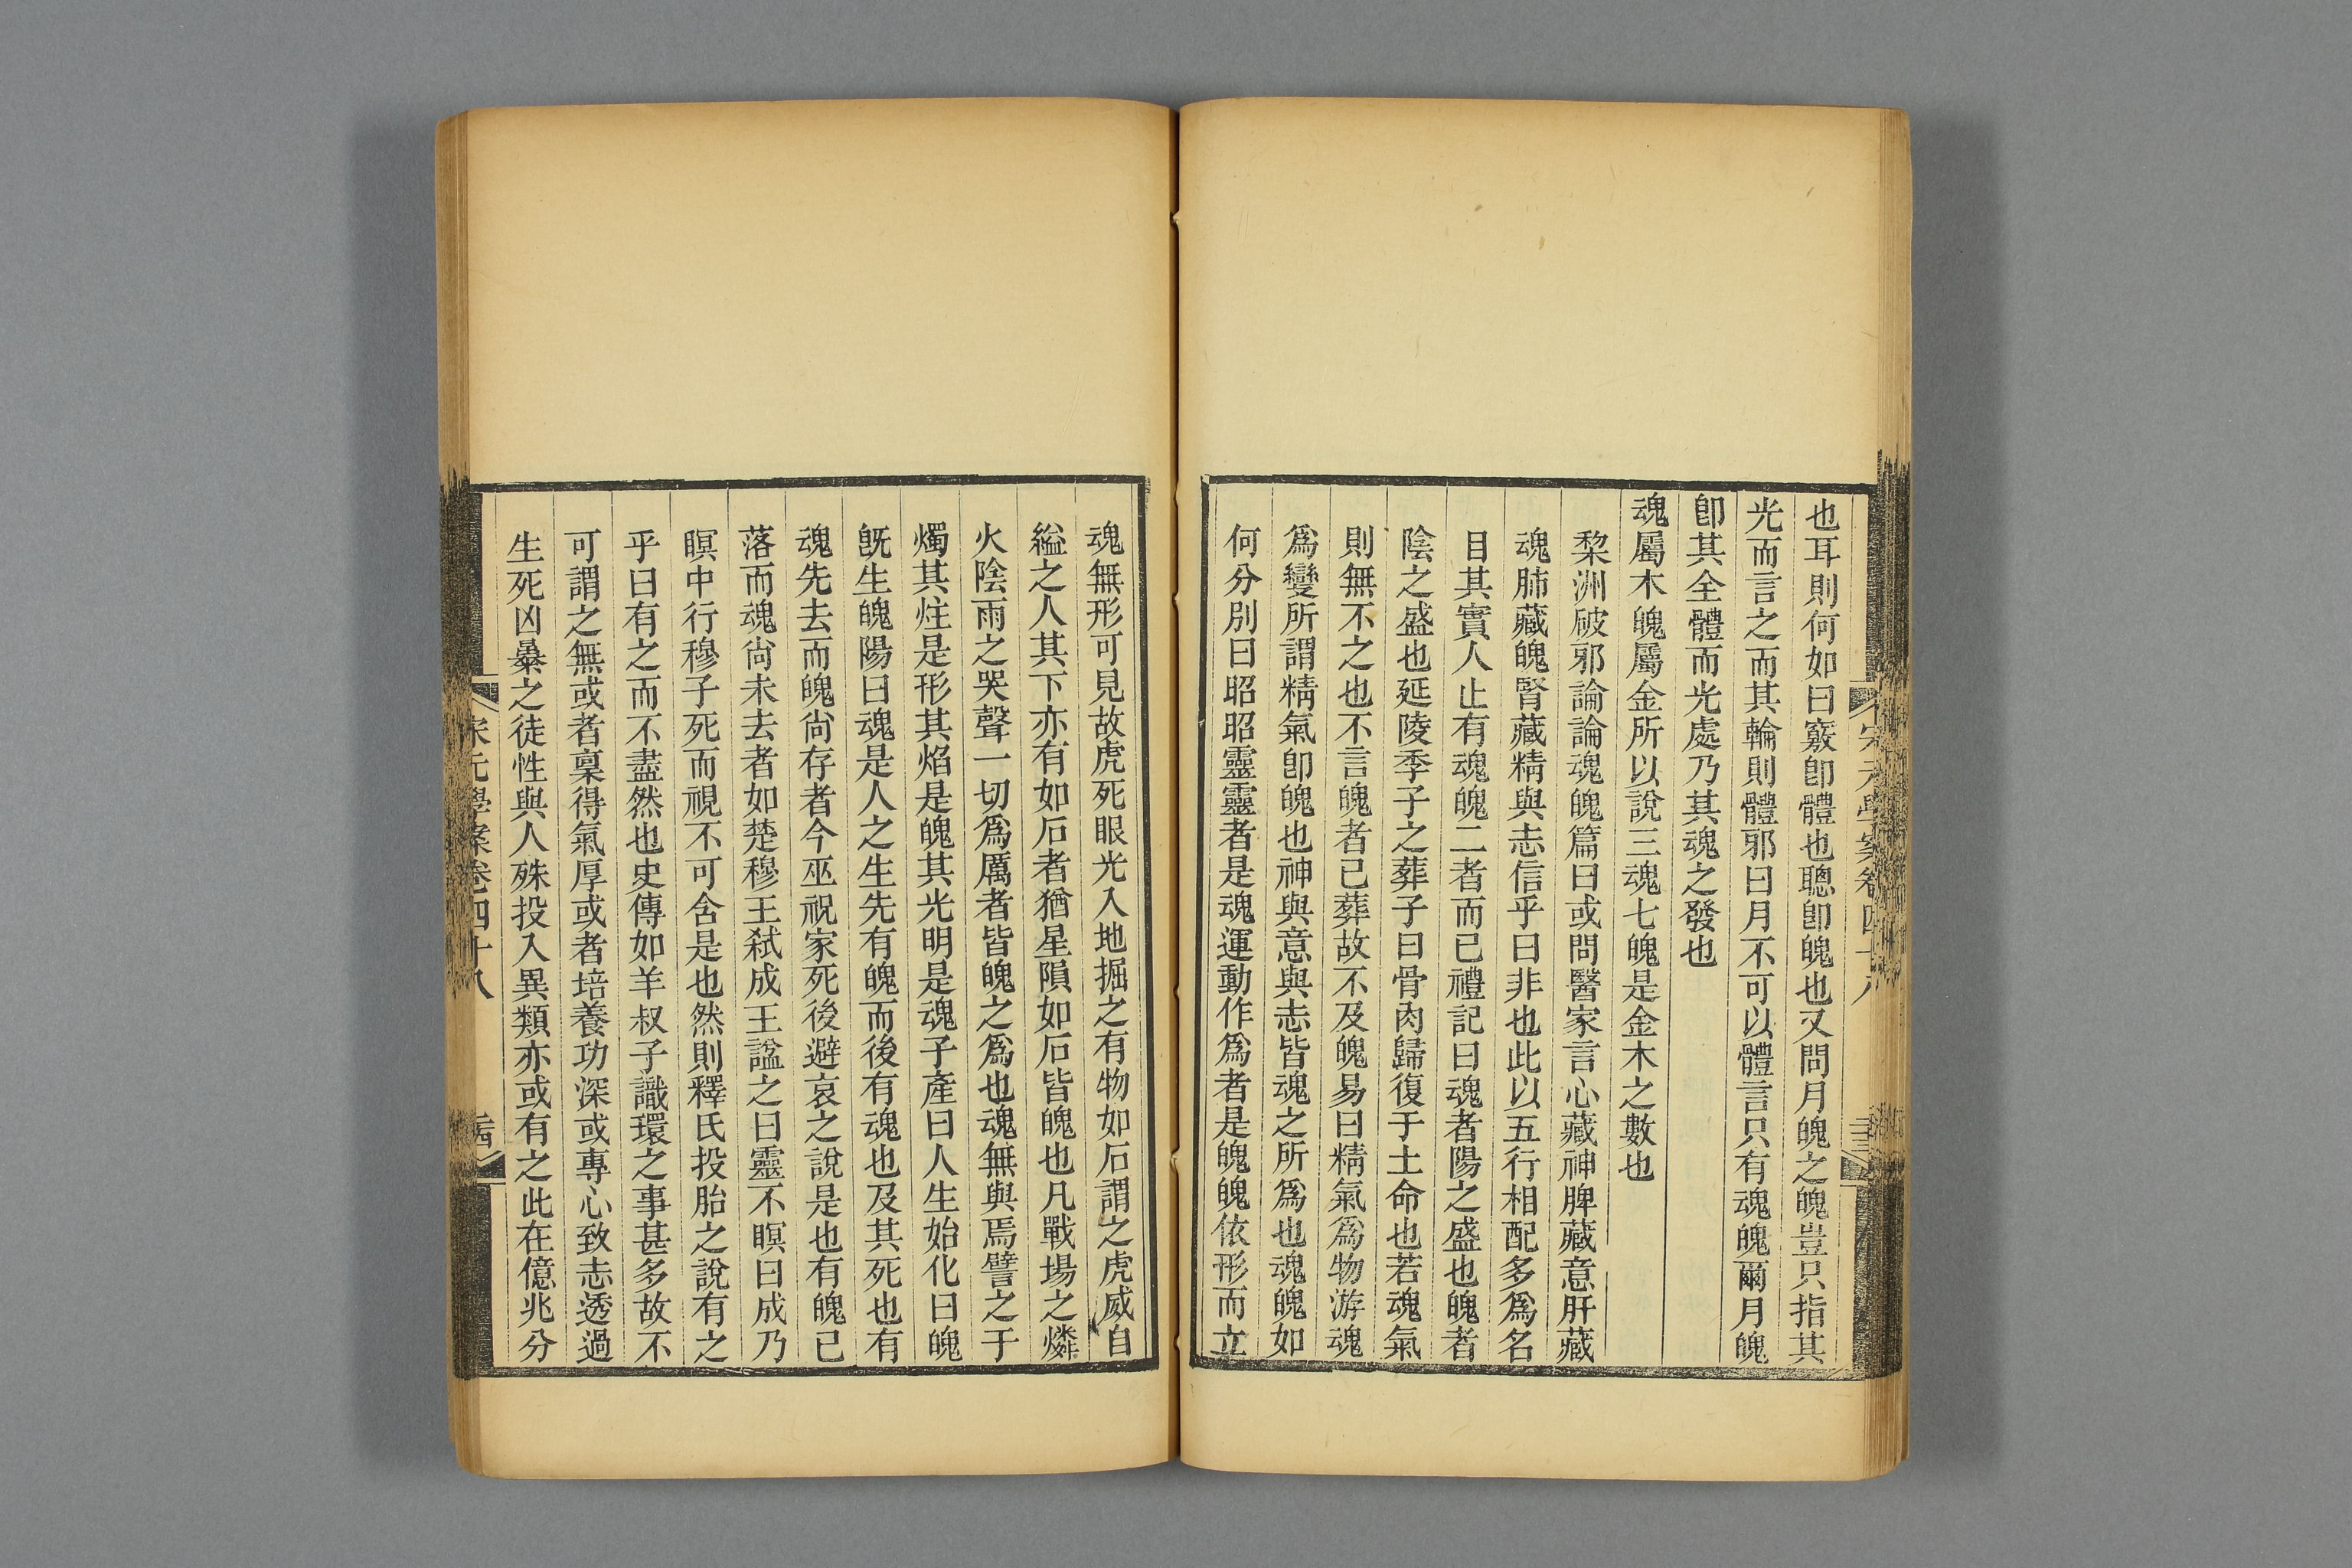 也耳則何如曰竅卽體也聰卽魄也又問月魄之魄豈只指其
光而言之而其輪則體邪曰月不可以體言只有魂魄爾月魄
卽其全體而光處乃其魂之發也
魂屬木魄屬金所以說三魂七魄是金木之數也
黎洲破邪論論魂魄篇曰或問醫家言心藏神脾藏意肝藏
魂肺藏魄腎藏精與志信乎曰非也此以五行相配多爲名
目其實人止有魂魄二者而已禮記曰魂者陽之盛也魄者
陰之盛也延陵季子之葬子曰骨肉歸復于土命也若魂氣
則無不之也不言魄者已葬故不及魄易曰精氣爲物游魂
爲變所謂精氣卽魄也神與意與志皆魂之所爲也魂魄如
何分別曰昭昭靈靈者是魂運動作爲者是魄魄依形而立
魂無形可見故虎死眼光入地掘之有物如石謂之虎威自
縊之人其下亦有如石者猶星隕如石皆魄也凡戰場之燐
火陰雨之哭聲一切爲厲者皆魄之爲也魂無與焉譬之于
燭其炷是形其焰是魄其光明是魂子產曰人生始化曰魄
旣生魄陽曰魂是人之生先有魄而後有魂也及其死也有
魂先去而魄尙存者今巫祝家死後避哀之說是也有魄已
落而魂尙未去者如楚穆王弑成王諡之曰靈不瞑曰成乃
瞑中行穆子死而視不可含是也然則釋氏投胎之說有之
乎曰有之而不盡然也史傳如羊叔子識環之事甚多故不
可謂之無或者稟得氣厚或者培養功深或專心致志透過
生死凶暴之徒性與人殊投入異類亦或有之此在億兆分
宋元學案卷四十八